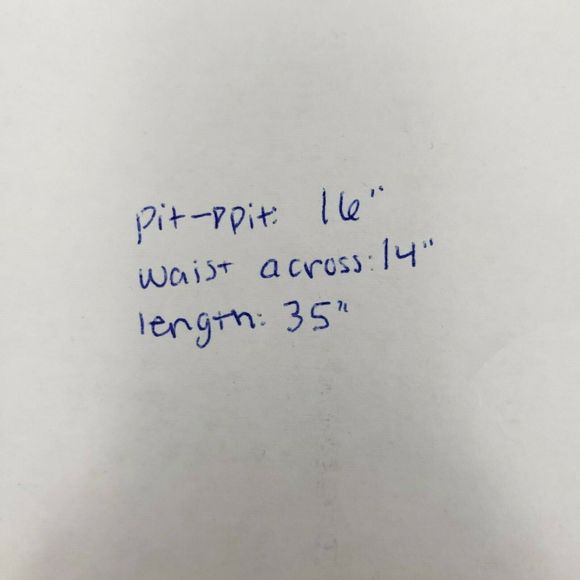 pit→pit: 16"
waist across: 14"
length: 35"